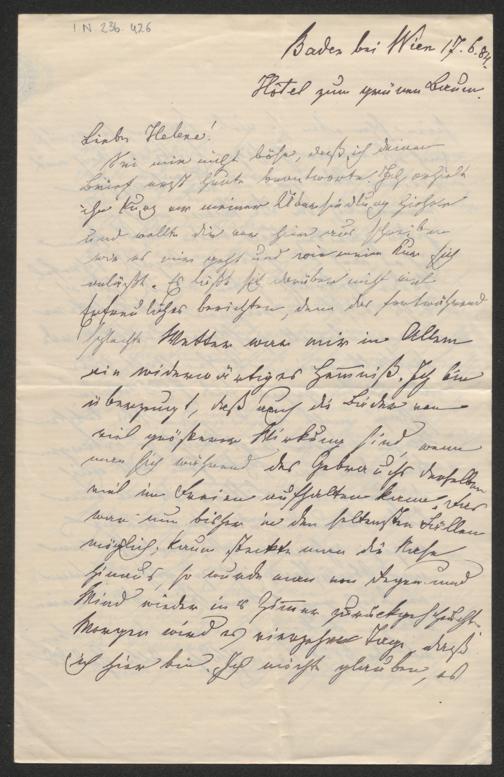 I N 236.426
Baden bei Wien 17.6.84.
Hôtel zum grünen Baum.
Liebe Helene!
Sei mir nicht böse, daß ich deinen
Brief erst heute beantworte. Ich erhielt
ihn kurz vor meiner Übersiedlung hieher
und wollte dir von hier aus schreiben
wie es mir geht und wie meine Kur sich
anläßt. Es läßt sich darüber nicht viel
Erfreuliches berichten, denn das fortwährend
schlechte Wetter war mir in Allem
ein widerwärtiges Hemniß. Ich bin
überzeugt, daß auch die Bäder von
viel größerer Wirkung sind, wenn
man sich während des Gebrauchs derselben
viel im Freien aufhalten kann. Das
war nun bisher in den seltensten Fällen
möglich; kaum steckte man die Nase
hinaus, so wurde man von Regen und
Wind wieder in's Zimmer zurückgescheucht.
Morgen wird es vierzehn Tage, daß
ich hier bin. Ich möchte glauben, es